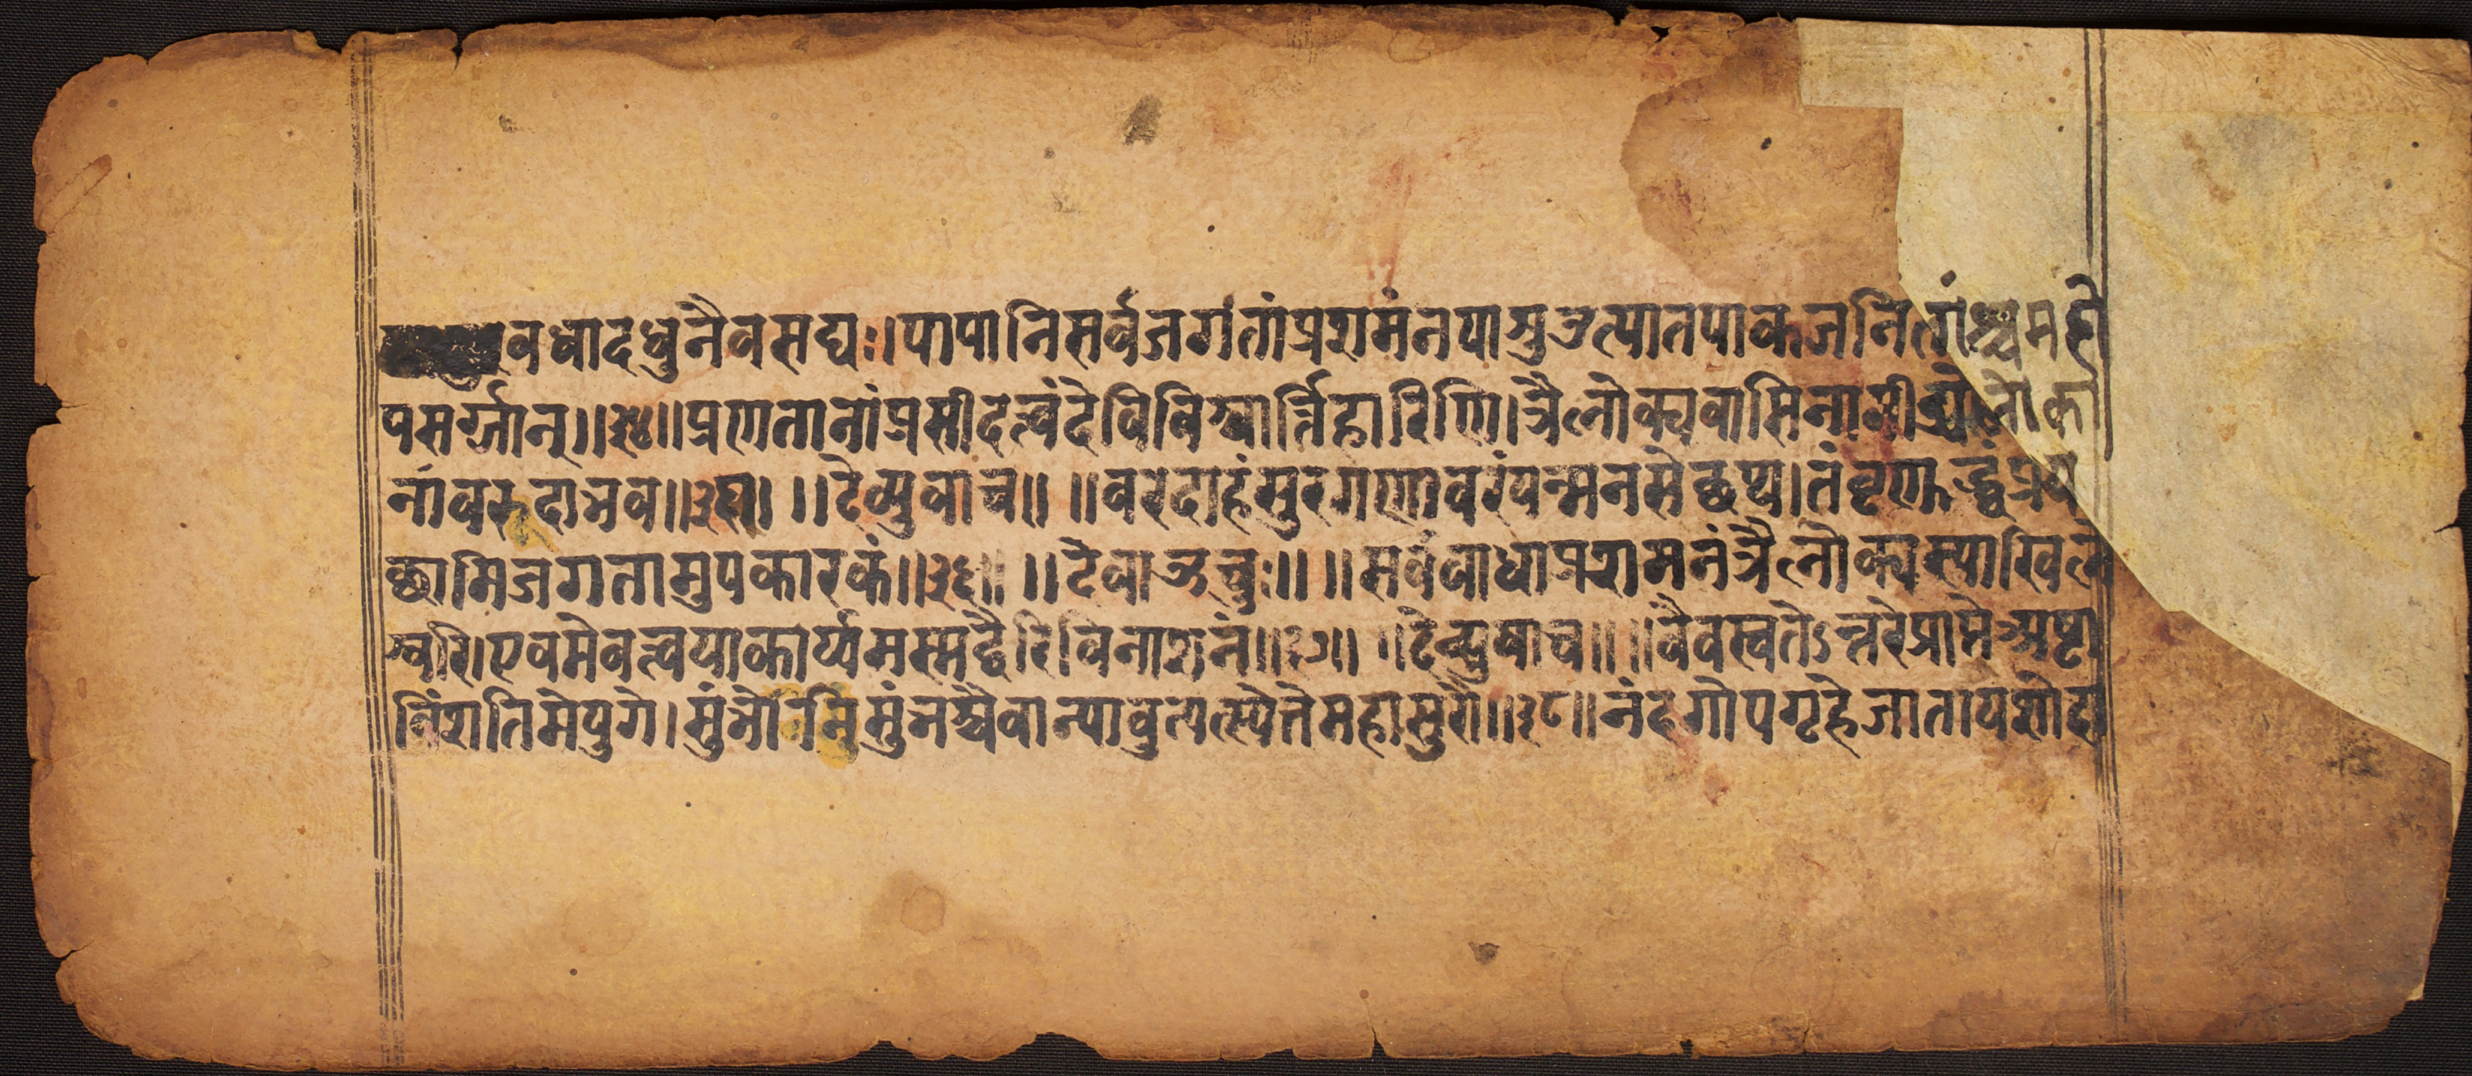 वधादधुनैवसद्यः।पापानिसर्वजगतांप्रशमंनयाशुउत्पातपाकजनितांश्चमहो
पसर्ग्गान्॥३४॥प्रणतानांप्रसीदत्वंदेविविश्वार्त्तिहारिणि।त्रैलोक्यवासिनामीड्येलोका
नांवरदाभव॥३५॥ ॥देव्युवाच॥ ॥वरदाहंसुरगणावरंयन्मनसेच्छथ।तंवृणुद्ध्वंप्रय
च्छामिजगतामुपकारकं॥३६॥ ॥देवाऊचुः॥ ॥सर्वबाधाप्रशमनंत्रैलोक्यस्याखिले
श्वरि।एवमेवत्वयाकार्य्यमस्मद्वैरिविनाशनं॥३७॥ ॥देव्युवाच॥ ॥वैवस्वतेऽन्तरेप्राप्तेअष्टा
विंशतिमेयुगे।शुंभोनिशुंभश्चैवान्यावुत्पत्स्येतेमहासुरौ॥३८॥नंदगोपगृहेजातायशोदा